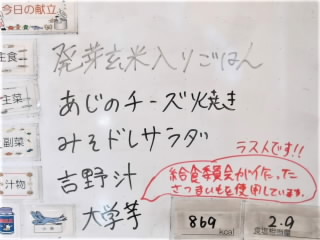 今日の献立
発芽玄米入りごはん
主食
あじのチーズ焼き
主菜
みそドレサラダ
副菜
ラストです!!
吉野汁
汁物
給食委員会が作った
さつまいもを使用しています。
大学芋
869
kcal
2.9
食塩相当量